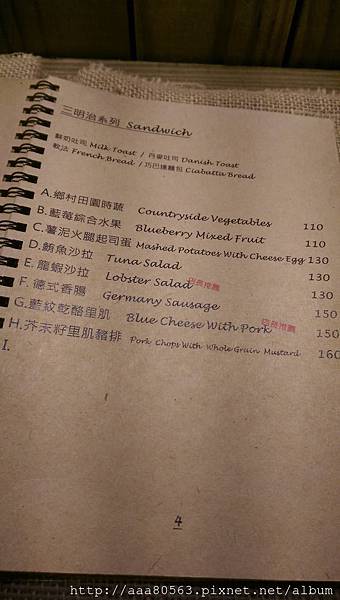 三明治系列 Sandwich
鮮奶吐司 Milk Toast / 丹麥吐司 Danish Toast
軟法 French Bread / 巧巴達麵包 Ciabatta Bread
A.鄉村田園時蔬 Countryside Vegetables 110
B.藍莓綜合水果 Blueberry Mixed Fruit 110
C.薯泥火腿起司蛋 Mashed Potatoes With Cheese Egg 130
D.鮪魚沙拉 Tuna Salad 130
E.龍蝦沙拉 Lobster Salad 店長推薦 130
F.德式香腸 Germany Sausage 150
G.藍紋乾酪里肌 Blue Cheese With Pork 店長推薦 150
H.芥末籽里肌豬排 Pork Chops With Whole Grain Mustard 160
I.
4
http://aaa80563.pixnet.net/album